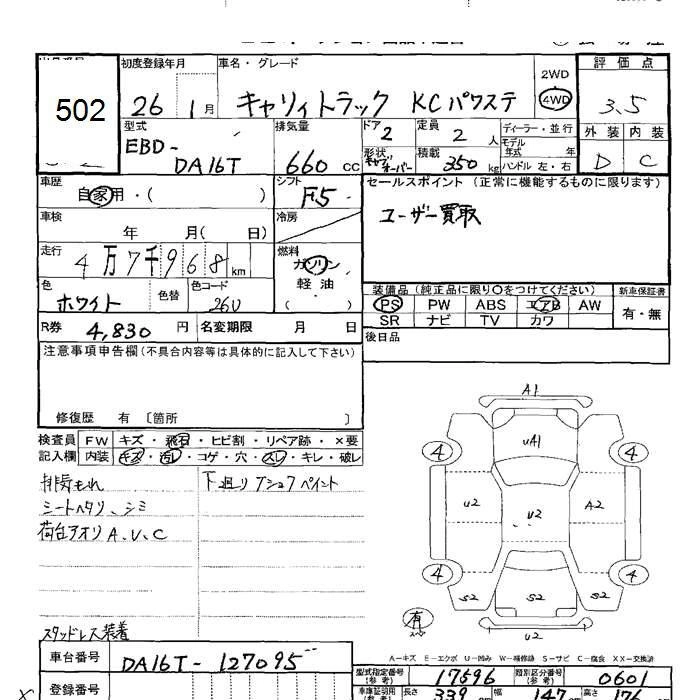 502
初度登録年月
26 1月
車名・グレード
キャリィトラック KCパワステ
2WD
4WD
評価点
3.5
外装 内装
D C
型式
EBD-
DA16T
排気量
660 CC
ドア
2
定員
2人
ディーラー・並行
モデル年式 年
ハンドル 左・右
形状
積載
350 kg
車歴
自家用・( )
シフト
F5
セールスポイント (正常に機能するものに限ります)
ユーザー買取
車検
年 月( 日)
冷房
走行
4万7千968km
燃料
ガソリン
軽油
( )
色
ホワイト
色替
色コード
26U
装備品(純正品に限り○をつけてください)
新車保証書
PS PW ABS エアB AW
有・無
SR ナビ TV カワ
R券 4,830 円
名変期限 月 日
後日品
注意事項申告欄(不具合内容等は具体的に記入して下さい)
修復歴 有 〔箇所 〕
検査員 FW キズ・飛石・ヒビ割・リペア跡・×要
記入欄 内装 キズ・汚レ・コゲ・穴・スレ・キレ・破レ
排気もれ
シートヘタリ、シミ
荷台アオリ A、U、C
スタッドレス装着
下廻り
ペイント
A1
UA1
4 4
U2 U2 A2
4 4
S2 S2 S2
有
U2
A-キズ E-エクボ U-凹み W-補修跡 S-サビ C-腐食 XX-交換済
車台番号 DA16T-127095
型式指定番号
(参考)
17596
類別区分番号
(参考)
0601
登録番号
車庫証明用
(参考)
長さ 339
幅 147
高さ 176